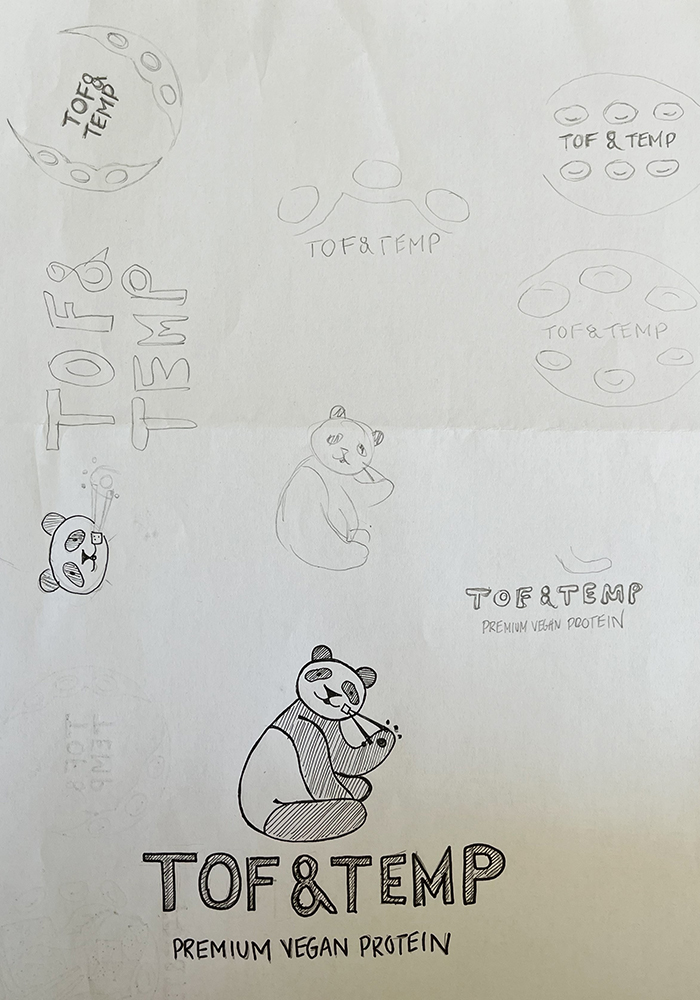 TOF&
TEMP
TOF & TEMP
TOF&TEMP
TOF&
TEMP
TOF&TEMP
TOF&TEMP
PREMIUM VEGAN PROTEIN
TOF&
TEMP
TOF&TEMP
PREMIUM VEGAN PROTEIN